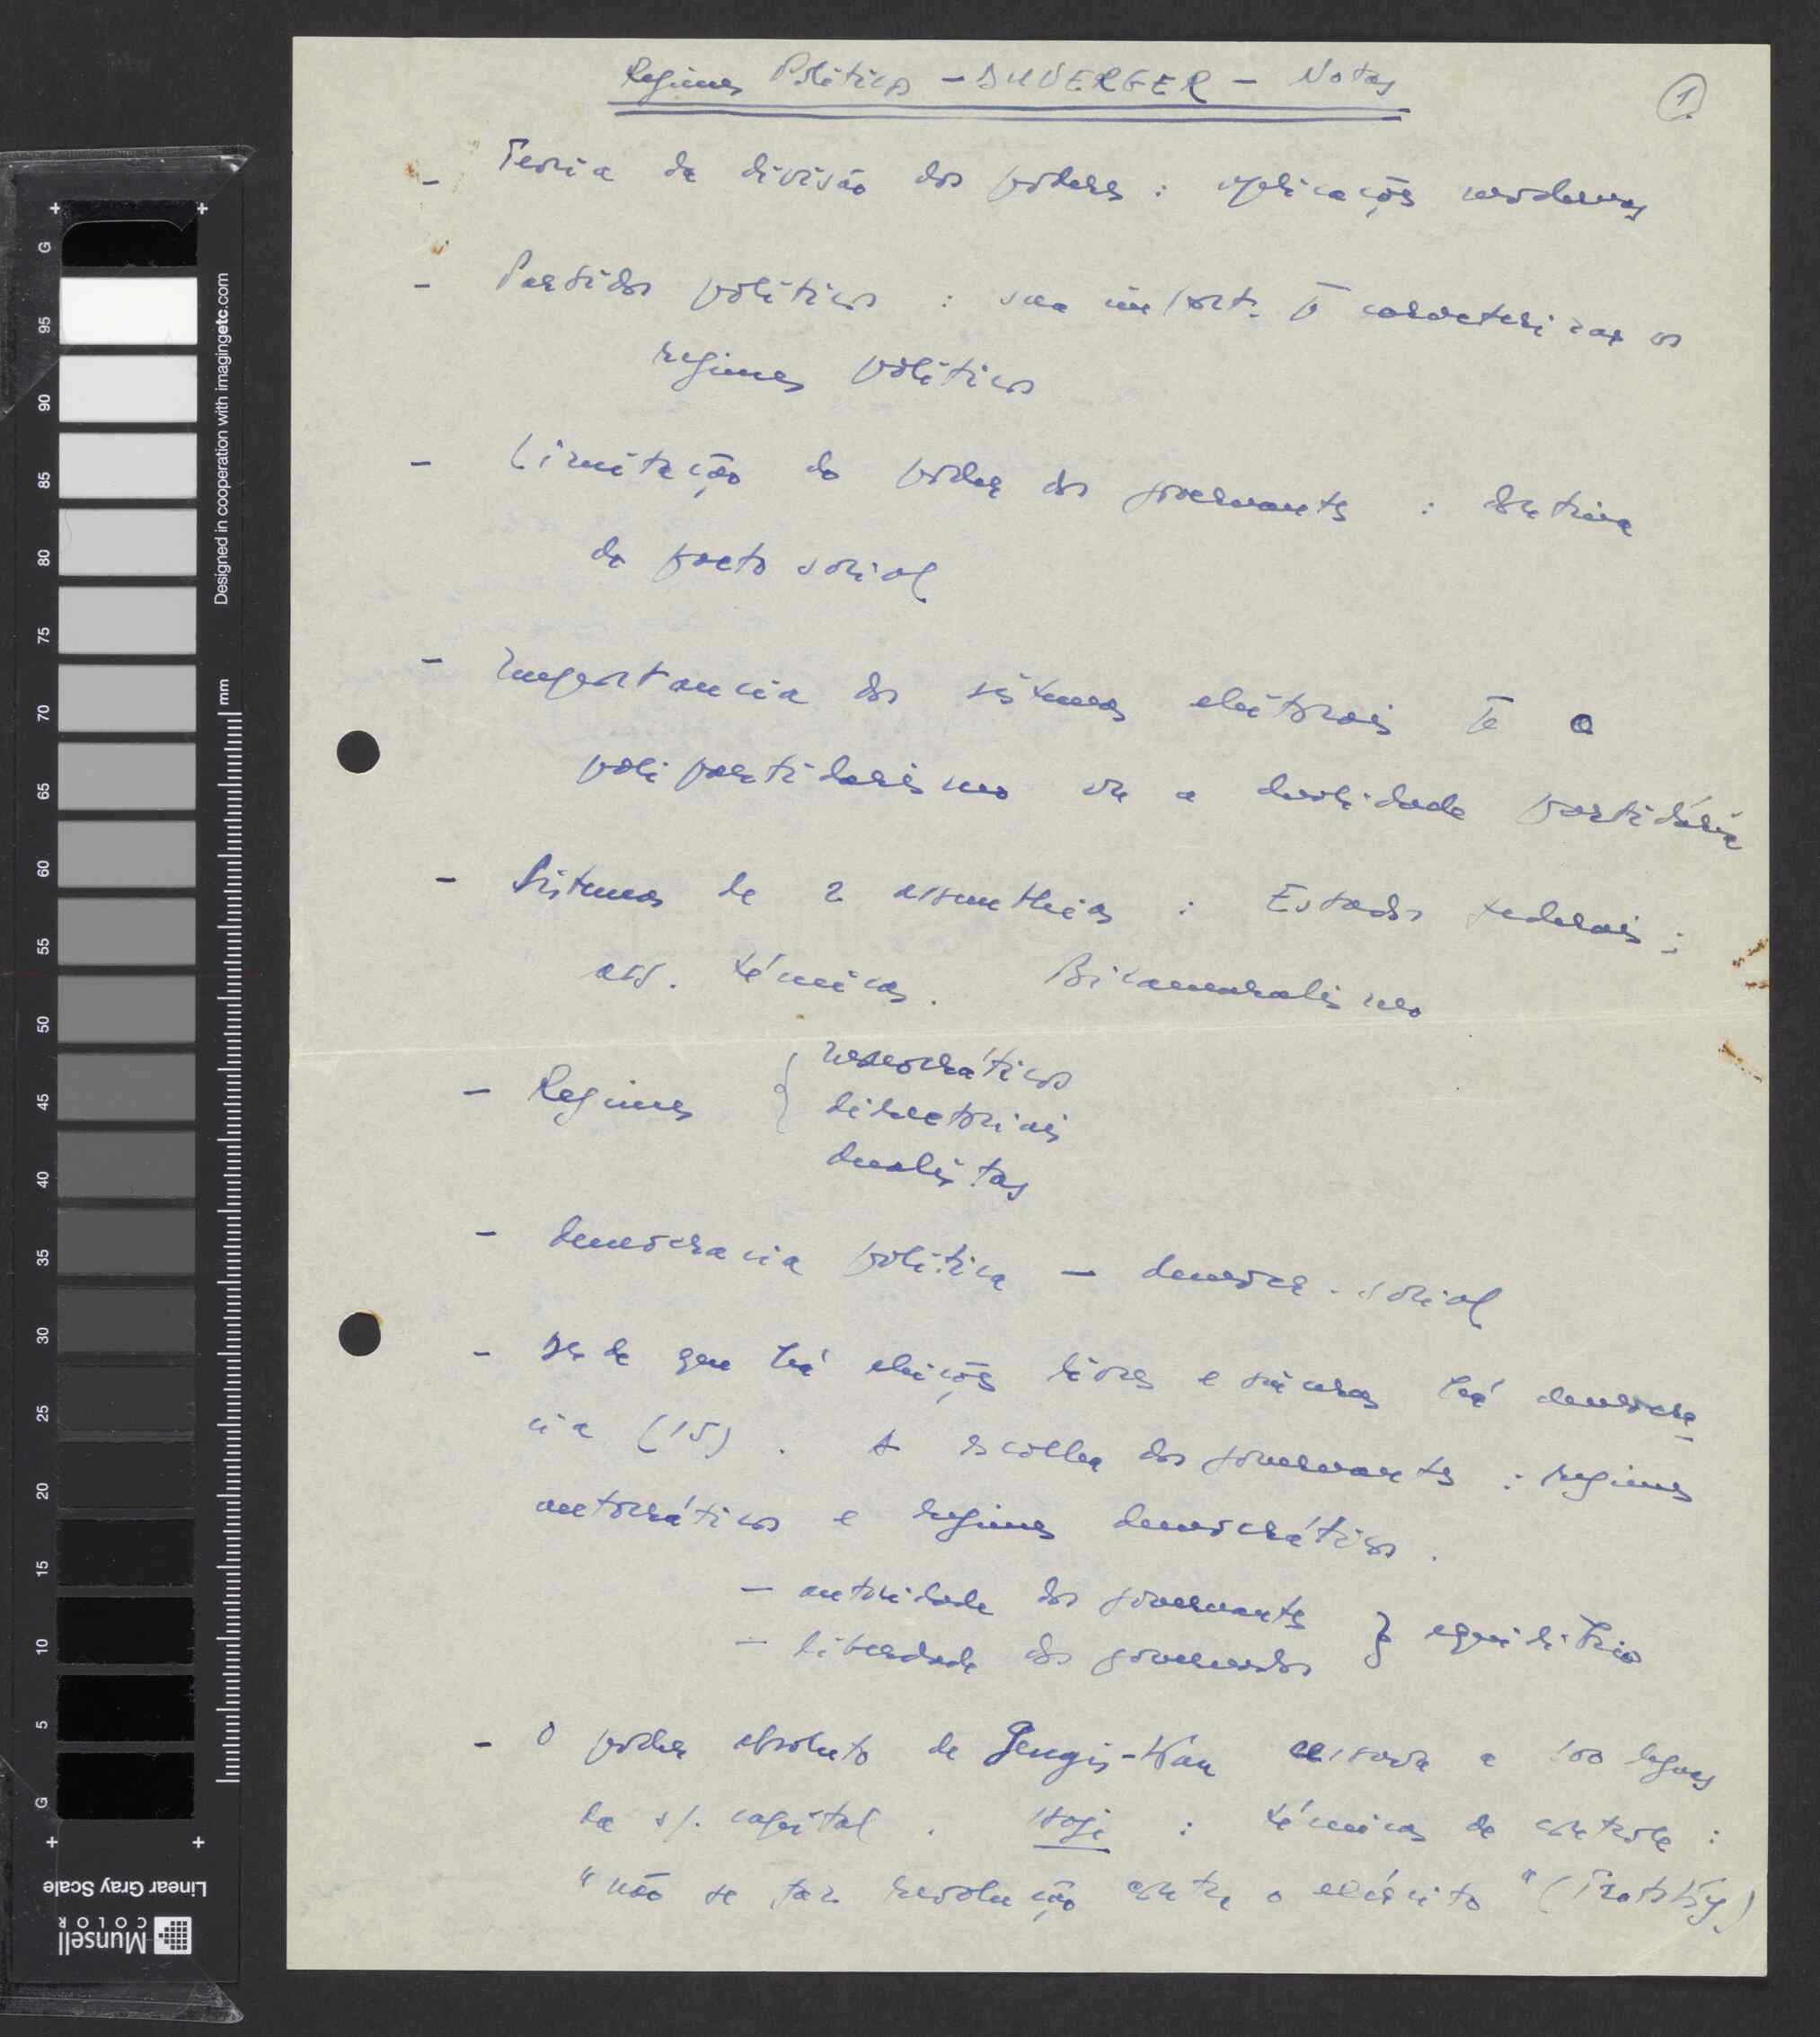 Regimes Políticos - DUVERGER - Notas
1.
- Teoria da divisão dos poderes : aplicações modernas
- Partidos políticos : sua import. p/ caracterizar os
regimes políticos
- Limitação do poder dos governantes : doutrina
do pacto social
- Importancia dos sistemas eleitorais p/ o
poli partidarismo ou a dualidade partidária
- Sistemas de 2 assembleias : Estados federais ;
ass. técnicas. Bicameralismo
- Regimes {
monocráticos
diretoriais
dualistas
- Democracia política - democr. social
- Desde que há eleições livres e sinceras há democra
cia (15). A escolha dos governantes : regimes
autocráticos e regimes democráticos.
- autoridade dos governantes
- liberdade dos governados
} equilíbrio
- O poder absoluto de Gengis-Kan cessava a 100 leguas
da s/. capital. Hoje : técnicas de controle :
"não se faz revolução contra o exército" (Trotsky)
G 95 90 85 80 75 70 65 60 55 50 45 40 35 30 25 20 15 10 5 G
Designed in cooperation with imagingetc.com
mm
Linear Gray Scale
Munsell
COLOR